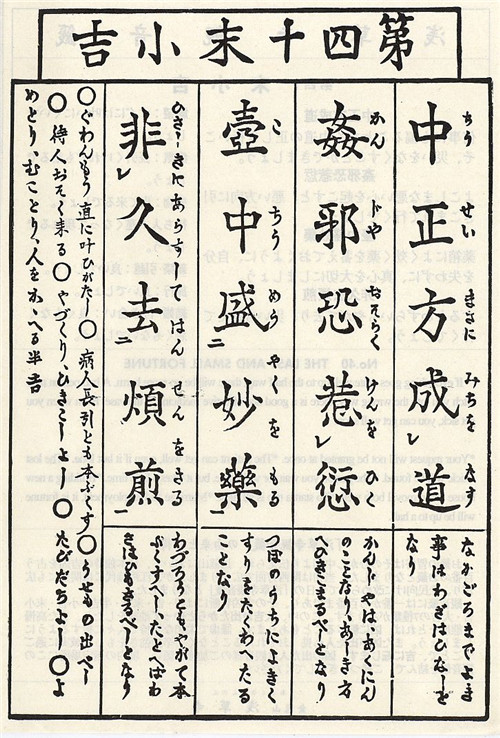 第四十末小吉
中正方成レ道
ちう せい まさに みちを なす
なかごろまでよき
事はわざはひなしと
なり
姦邪恐惹レ愆
かん じや おそらく けんを ひく
かんじやは、あくにん
のことなり、あしき方
ひきあるべしとなり
壺中盛二妙薬一
こ ちう めう やくを もる
つぼのうちによきく
すりをたくわへたる
ことなり
非レ久去二煩煎一
ひさしきにあらずしてはんせんをさる
わづらひことやぶれて本
ぷくすべし、たとへばわ
ざはひもさるべしとなり
○ぐわんもう直に叶ひがたし○病人長引とも本ぷくす○うせもの出べし
○待人おそく来る○やづくり、ひきこしよし○たびだちよし○よ
めとり、むことり、人をかゝへる半吉